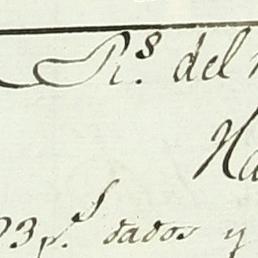 R.s del
Ha
93 p.s dados y